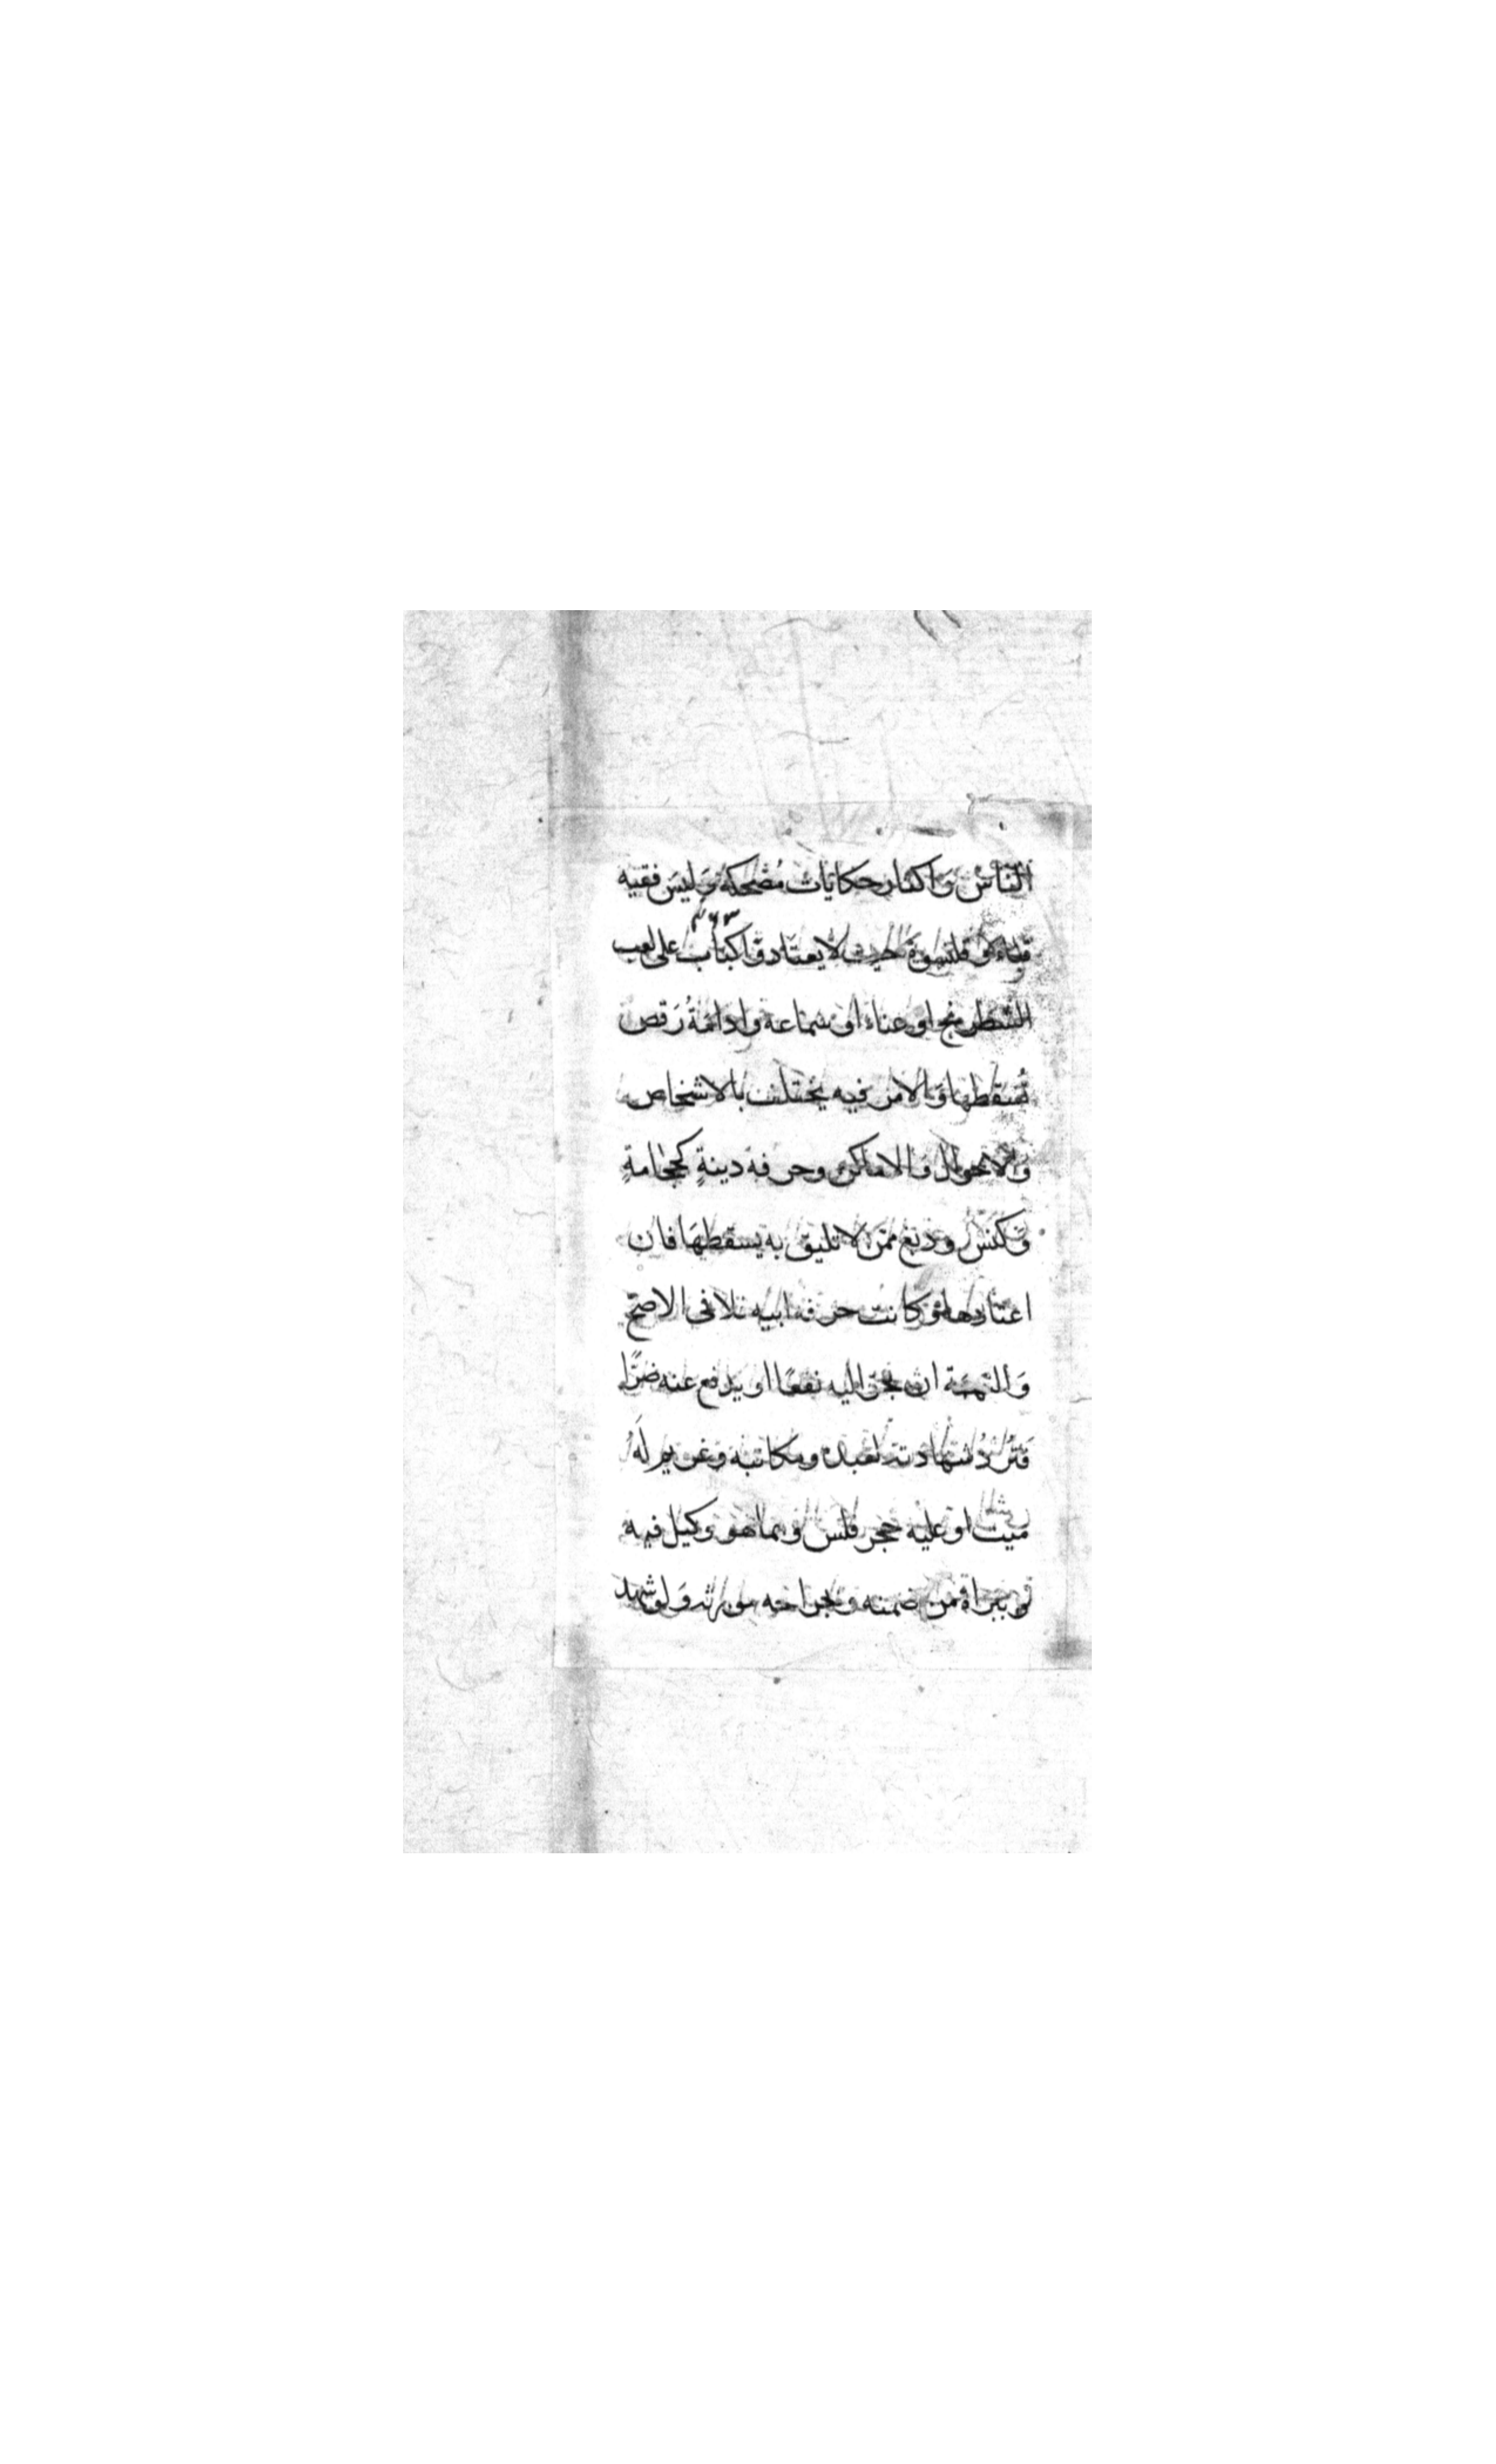 الناس وَاكثار حكايات مُضحكة وَليسَ فقيه
قباء او قلنسوة حيث لا يعتاد وَاكباب على لعب
الشطرنج او غناء او سماعه وادامةُ رَقص
تُسقطها وَالامر فيه يختلف بالاشخاص
وَالاحوال وَالاماكن وحرفة دينةٍ كحجامةٍ
وَكنس ودبغ ممّن لا تليق به يسقطهَا فان
اعتادها وكانت حرفة ابيه فلا في الاصحّ
وَالتهمة ان يجرّ اليه نفعًا او يدفع عنه ضرًا
فَتُردُ شهادته لعبده ومكاتبه وغريم لهُ
ميت او عليه حجر فلس وبما هو وكيل فيه
وببراة من ضمنه وبجراحه مورثه وَلو شهد